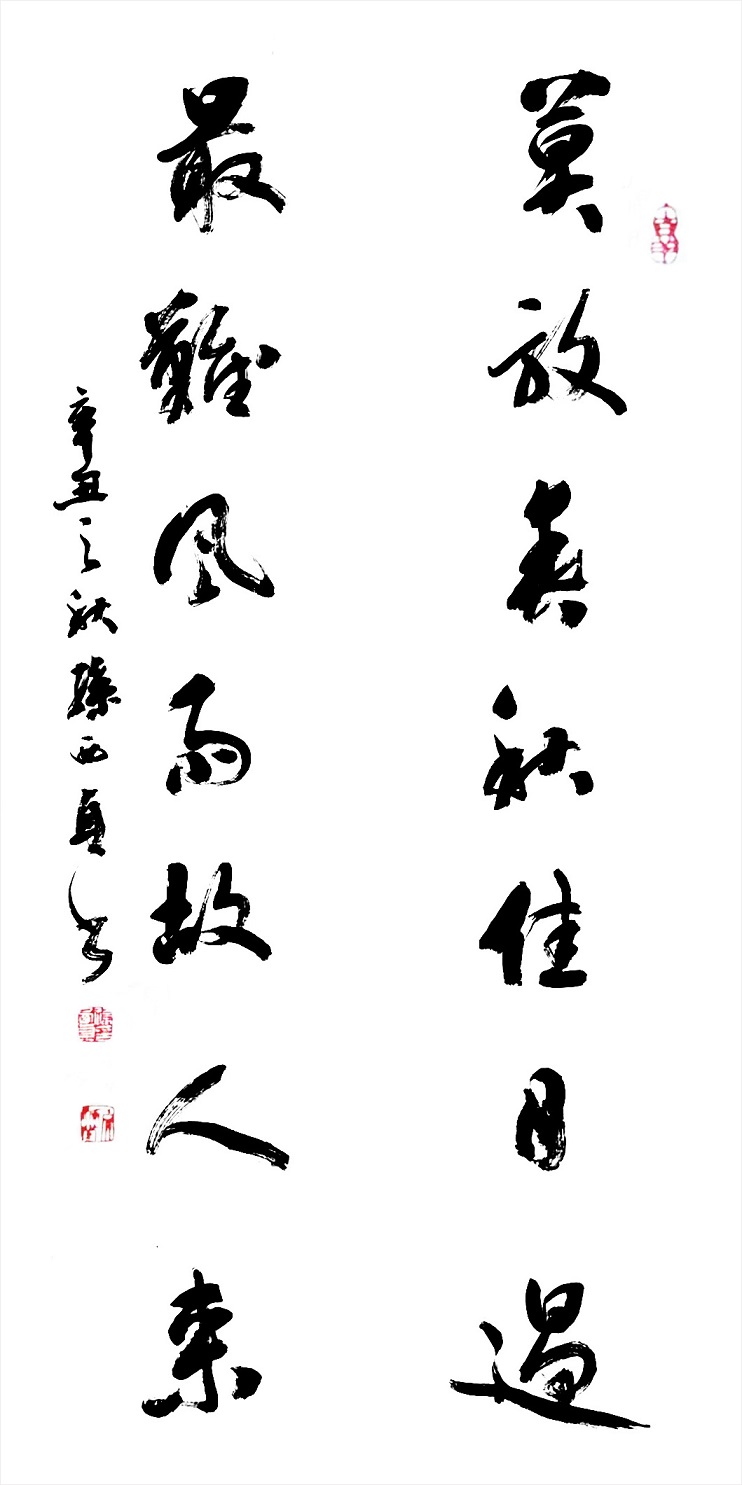 莫放春秋佳日過
最難風雨故人來
辛丑之秋孫西貞书